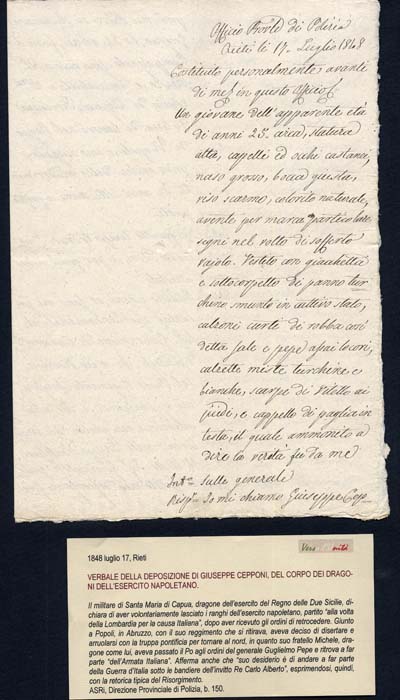 Officio Prov.le di Polizia
Rieti li 17. Luglio 1848
Costituto personalmente avanti
di me in questo Officio
Un giovane dell'apparente età
di anni 25. circa, statura
alta, capelli ed occhi castani,
naso grosso, bocca giusta,
viso scarno, colorito naturale,
avente per marca particolare
segni nel volto di sofferto
vajolo. Vestito con giacchetta
e sottocorpetto di panno tur
chino smunto in cattivo stato,
calzoni curti di robba così
detta sale e pepe assai locori,
calzette miste turchine e
bianche, scarpe di vitello ai
piedi, e cappello di paglia in
testa, il quale ammonito a
dire la verità fu da me
Int.to Sulle generali
Risp.se Io mi chiamo Giuseppe Cep-
1848 luglio 17, Rieti
VERBALE DELLA DEPOSIZIONE DI GIUSEPPE CEPPONI, DEL CORPO DEI DRAGO-
NI DELL'ESERCITO NAPOLETANO.
Il militare di Santa Maria di Capua, dragone dell'esercito del Regno delle Due Sicilie, di-
chiara di aver volontariamente lasciato i ranghi dell'esercito napoletano, partito "alla volta
della Lombardia per la causa Italiana", dopo aver ricevuto gli ordini di retrocedere. Giunto
a Popoli, in Abruzzo, con il suo reggimento che si ritirava, aveva deciso di disertare e
arruolarsi con la truppa pontificia per tornare al nord, in quanto suo fratello Michele, dra-
gone come lui, aveva passato il Po agli ordini del generale Guglielmo Pepe e ritrova a far
parte "dell'Armata Italiana". Afferma anche che "suo desiderio è di andare a far parte
della Guerra d'Italia sotto le bandiere dell'invitto Re Carlo Alberto", esprimendosi, quindi,
con la retorica tipica del Risorgimento.
ASRi, Direzione Provinciale di Polizia, b. 150.